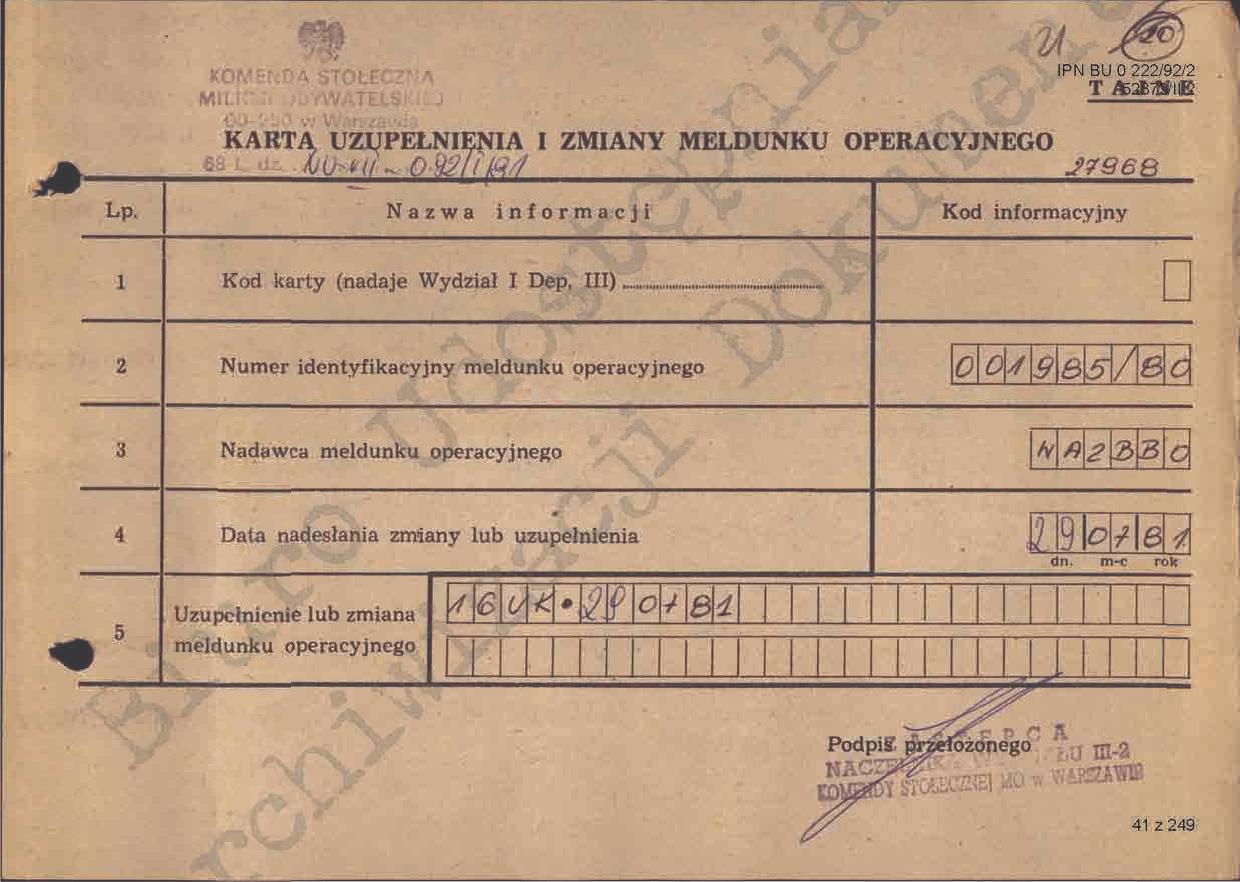 21 20
IPN BU 0 222/92/2
TAJNE
KOMENDA STOŁECZNA
MILICJI OBYWATELSKIEJ
00-950 w Warszawie
KARTA UZUPEŁNIENIA I ZMIANY MELDUNKU OPERACYJNEGO
68 L. dz. 27968
Lp. Nazwa informacji Kod informacyjny
1 Kod karty (nadaje Wydział I Dep, III)
2 Numer identyfikacyjny meldunku operacyjnego 001985/80
3 Nadawca meldunku operacyjnego WA2BB0
4 Data nadesłania zmiany lub uzupełnienia 290781
dn. m-c rok
5 Uzupełnienie lub zmiana meldunku operacyjnego 16UK•290781
Podpis przełożonego
ZASTĘPCA
NACZELNIKA WYDZIAŁU III-2
KOMENDY STOŁECZNEJ MO w WARSZAWIE
41 z 249
Biuro Udostępnia
rchiwizacji Dokumen